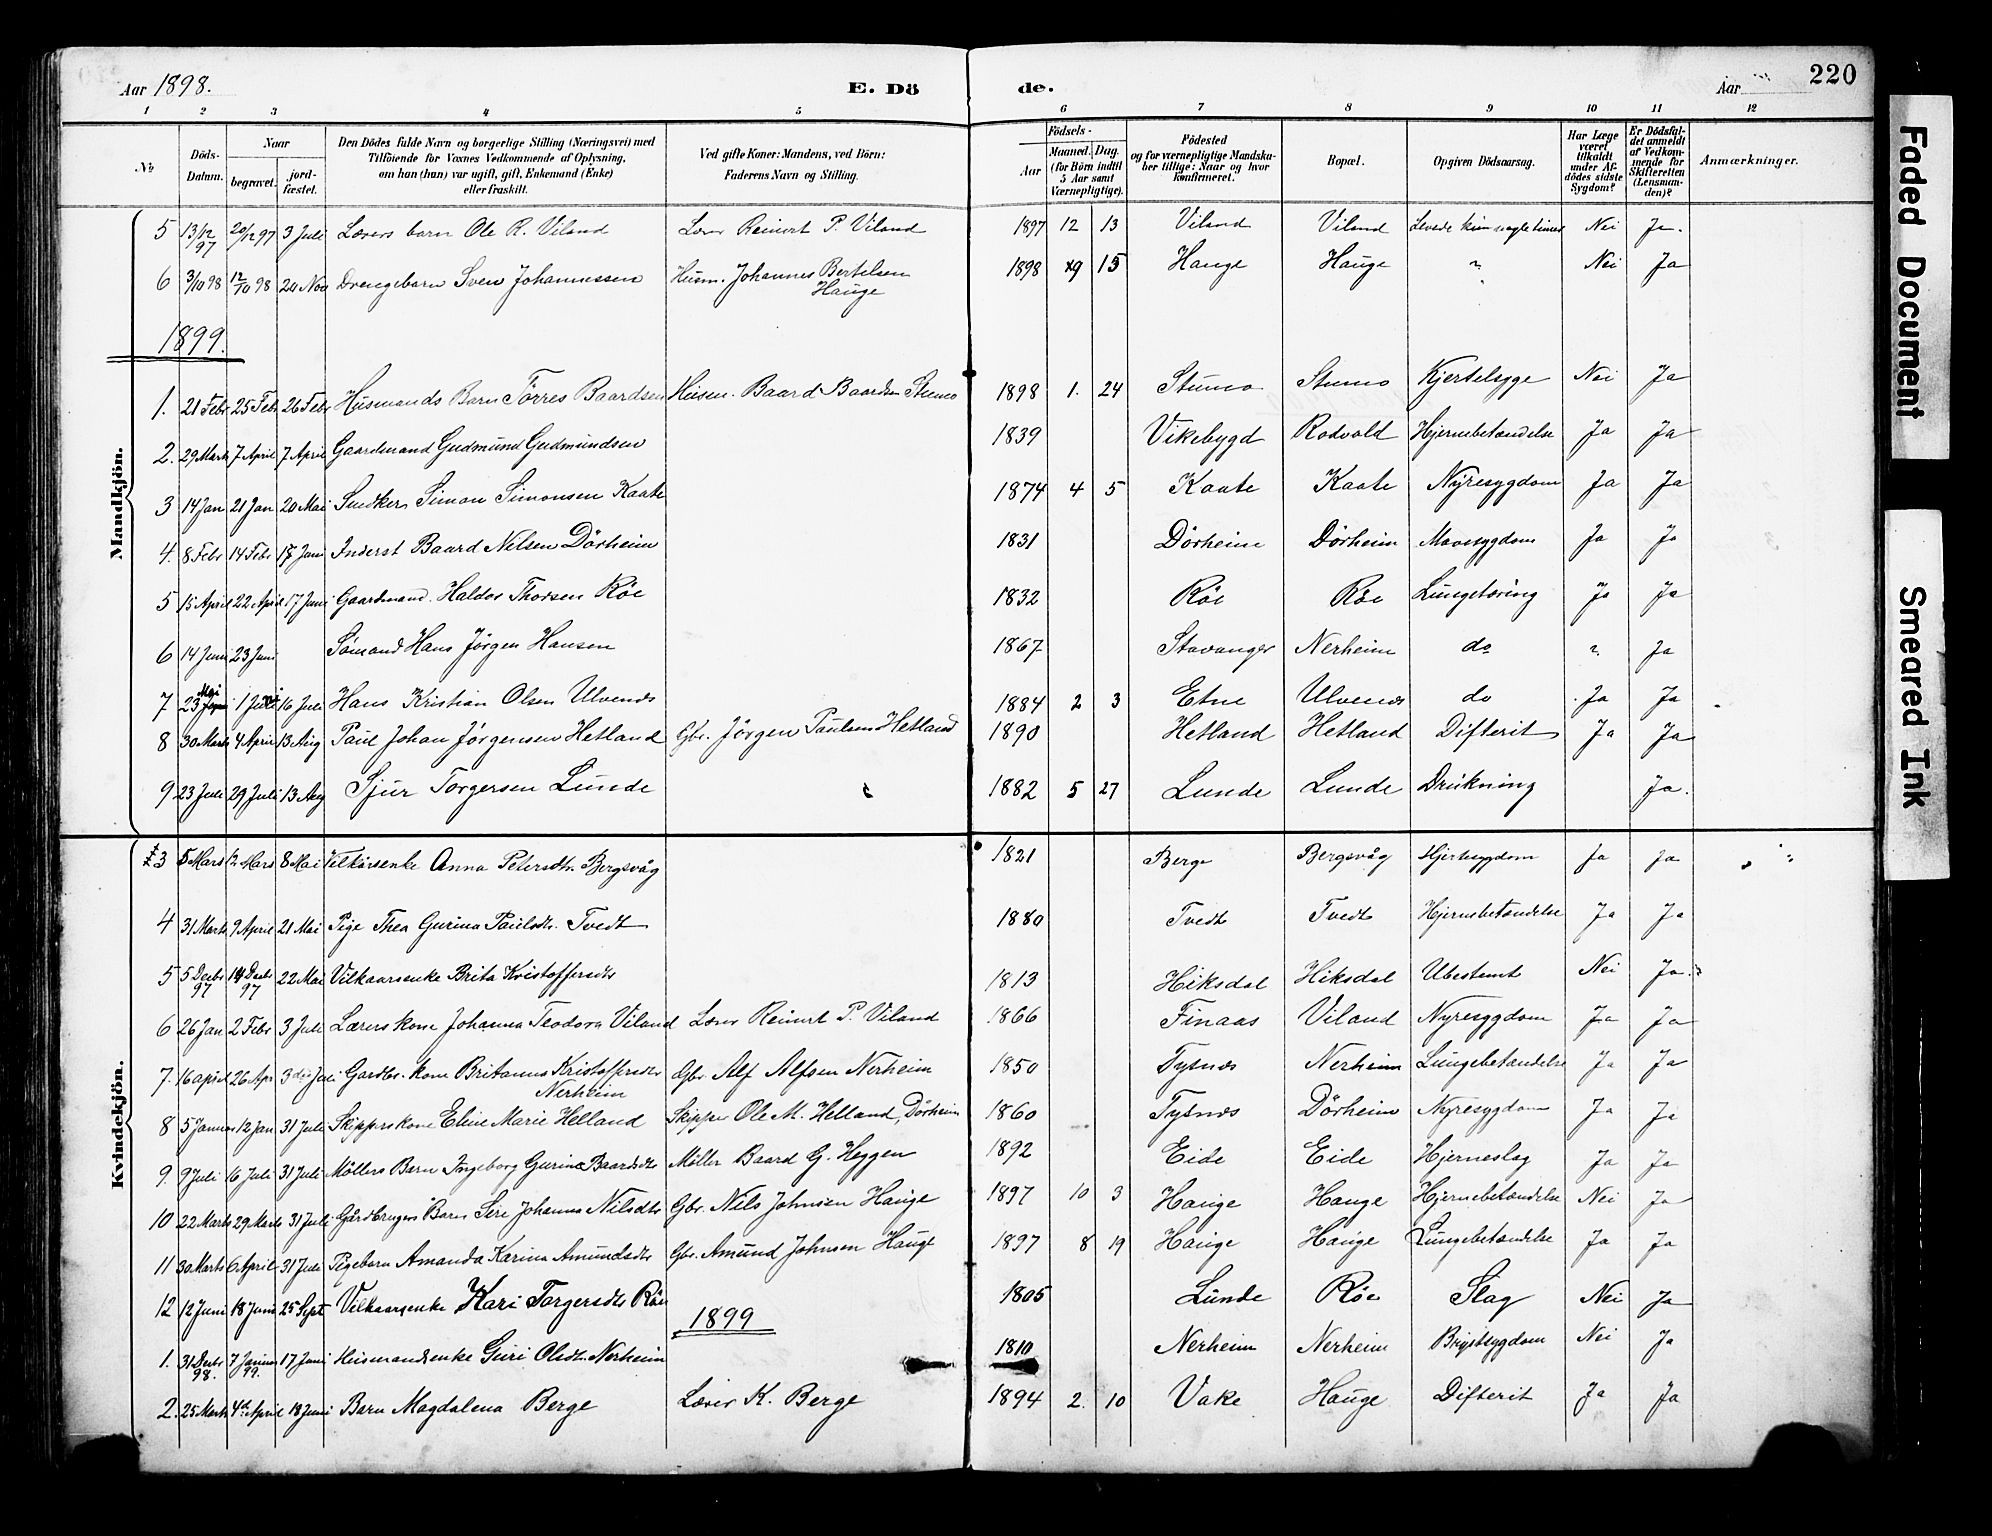 Aar 1898.
E. Dö
de.
Aar
220
1 2 3 4 5 6 7 8 9 10 11 12
No
Döds-Datum.
Naar
begravet.
jord-fæstet.
Den Dödes fulde Navn og borgerlige Stilling (Næringsvei) med
Tilföiende for Voxnes Vedkommende af Oplysning,
om han (hun) var ugift, gift, Enkemand (Enke)
eller fraskilt.
Ved gifte Koner: Mandens, ved Börn:
Faderens Navn og Stilling.
Födsels-
Aar
Maaned. Dag.
(for Börn indtil
5 Aar samt
Værnepligtige).
Födested
og for værnepligtige Mandska-
ber tillige: Naar og hvor
konfirmeret.
Bopæl.
Opgiven Dödsaarsag.
Har Læge
været
tilkaldt
under Af-
dödes sidste
Sygdom?
Er Dödsfal-
det anmeldt
af Vedkom-
mende for
Skifteretten
(Lensman-
den)?
Anmærkninger.
Mandkjön.
5 13/12 97 20/12 97 3 Juli Lærers barn Ole R. Viland Lærer Reinert P. Viland 1897 12 13 Viland Viland Levede kun nogle timer Nei Ja.
6 3/10 98 12/10 98 20 Nov Drengebarn Sven Johannessen Husm. Johannes Bertelsen Hauge 1898 9 15 Hauge Hauge " Nei Ja
1899.
1. 21 Febr 25 Febr 26 Febr Husmands Barn Törres Baardsen Husm. Baard Baardsen Stumo 1898 1. 24 Stumo Stumo Kjertelsyge Nei Ja
2. 29 Marts 7 April 7 April Gaardmand Gudmund Gudmundsen 1839 Vikebygd Rodvold Hjernebetændelse Ja Ja
3 14 Jan 21 Jan 20 Mai Snedker Simon Simonsen Kaate 1874 4 5 Kaate Kaate Nyresygdom Ja Ja
4. 8 Febr 14 Febr 18 Juni Inderst Baard Nilsen Dörheim 1831 Dörheim Dörheim Mavesygdom Ja Ja
5 15 April 22 April 17 Juni Gaardmand. Haldor Thorsen Röe 1832 Röe Röe Lungetæring Ja Ja
6 14 Juni 23 Juni Sömand Hans Jörgen Hansen 1867 Stavanger Nerheim do ? Ja
7 23 Mai 1 Juni 16 Juli Hans Kristian Olsen Ulvenæs 1884 2 3 Etne Ulvenæs do Ja Ja
8 30 Marts 4 April 13 Aug Paul Johan Jörgensen Hetland Gbr. Jörgen Paulsen Hetland 1890 Hetland Hetland Difterit Ja Ja
9 23 Juli 29 Juli 13 Aug Sjur Torgersen Lunde 1882 5 27 Lunde Lunde Drukning Ja.
Kvindekjön.
3 5 Mars 12 Mars 8 Mai Vilkårsenke Anna Petersdtr. Bergsvåg 1821 Berge Bergsvåg Hjertesygdom Ja Ja
4 31 Marts 9 April 21 Mai Pige Thea Gurina Paulsdtr. Tvedt 1880 Tvedt Tvedt Hjernebetændelse Ja Ja
5 5 Decbr 97 14 Decbr 97 22 Mai Vilkaarsenke Brita Kristoffersdtr 1813 Hiksdal Hiksdal Ubestemt Nei Ja.
6 26 Jan 2 Febr 3 Juli Lærers kone Johanna Teodora Viland Lærer Reinert P. Viland 1866 Finaas Viland Nyresygdom Ja Ja
7. 16 april 26 Apr 3die Juli Gardbr. kone Britanus Kristoffersdtr Nerheim Gbr. Alf Alfsen Nerheim 1850 Tysnæs Nerheim Lungebetændelse Ja Ja
8 5 Januar 12 Jan 31 Juli Skippers kone Eline Marie Helland Skipper Ole M. Helland, Dörheim 1860 Tysnæs Dörheim Nyresygdom Ja Ja
9. 9 Juli 16 Juli 31 Juli Möllers Barn Ingeborg Gurine Baardsdtr Möller Baard G. Heggen 1892 Eide Eide Hjerneslag Ja Ja
10 22 Marts 29 Marts 31 Juli Gårdbrugers Barn Sire Johanna Nilsdtr Gbr. Nils Johnsen Hauge 1897 10 3 Hauge Hauge Hjernebetændelse Nei Ja
11 30 Marts 6 April 31 Juli Pigebarn Amanda Karina Amundsdtr Gbr. Amund Johnsen Hauge 1897 8 19 Hauge Hauge Lungebetændelse Ja Ja
12 12 Juni 18 Juni 25 Sept Vilkaarsenke Kari Torgersdtr Röe 1805 Lunde Röe Slag Nei Ja
1899
1. 31 Decbr 98. 7 Januar 99. 17 Juni Husmandsenke Guri Olsdtr. Nerheim 1810 Nerheim Nerheim Brystsygdom Nei Ja
2. 25 Marts 4de April 18 Juni Barn Magdalena Berge Lærer K. Berge 1894 2. 10 Vake Hauge Difterit Ja Ja
Faded Document
Smeared Ink